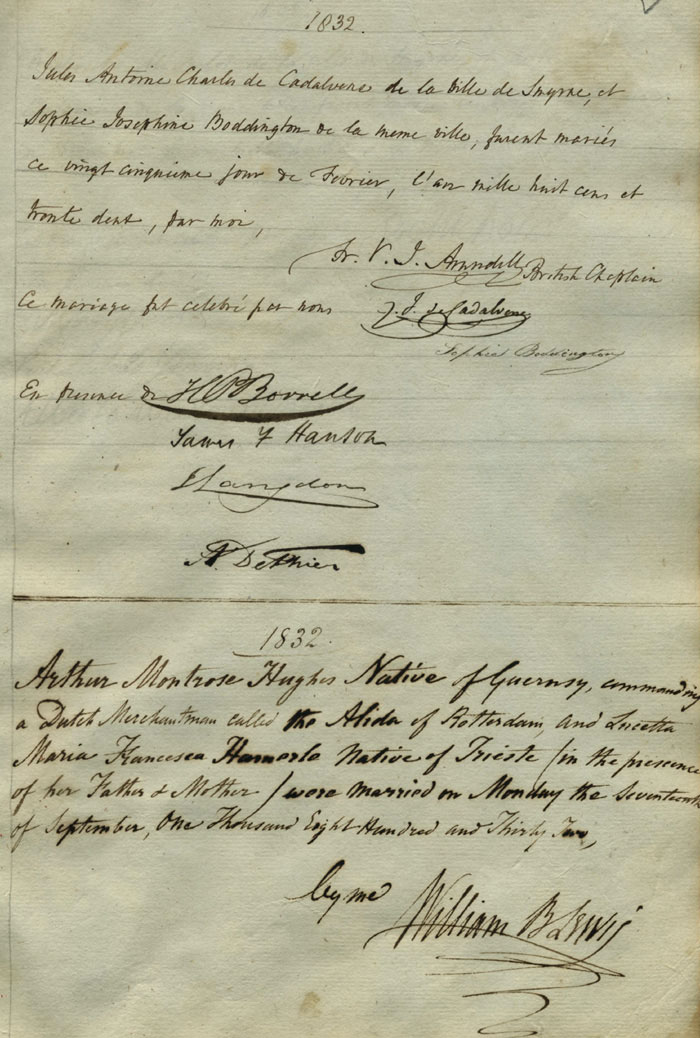 1832.
Jules Antoine Charles de Cadalvene de la ville de Smyrne, et
Sophie Josephine Boddington de la meme ville, furent mariés
ce vingt cinquieme jour de Fevrier, l'an mille huit cens et
trente deux, par moi,
Fr. V. J. Arundell British Chaplain
Ce mariage fut celebré par nous J. de Cadalvene
Sophie Boddington
En presence de H P Borrell
James F Hanson
Langdon
A. Dethier
1832.
Arthur Montrose Hughes Native of Guernsy, commanding
a Dutch Merchantman called the Alida of Rotterdam, and Lucetta
Maria Francesca Hamerle Native of Trieste /in the presence
of her Father & Mother / were married on Monday the Seventeenth
of September, One Thousand Eight Hundred and Thirty Two,
by me William B Lewis